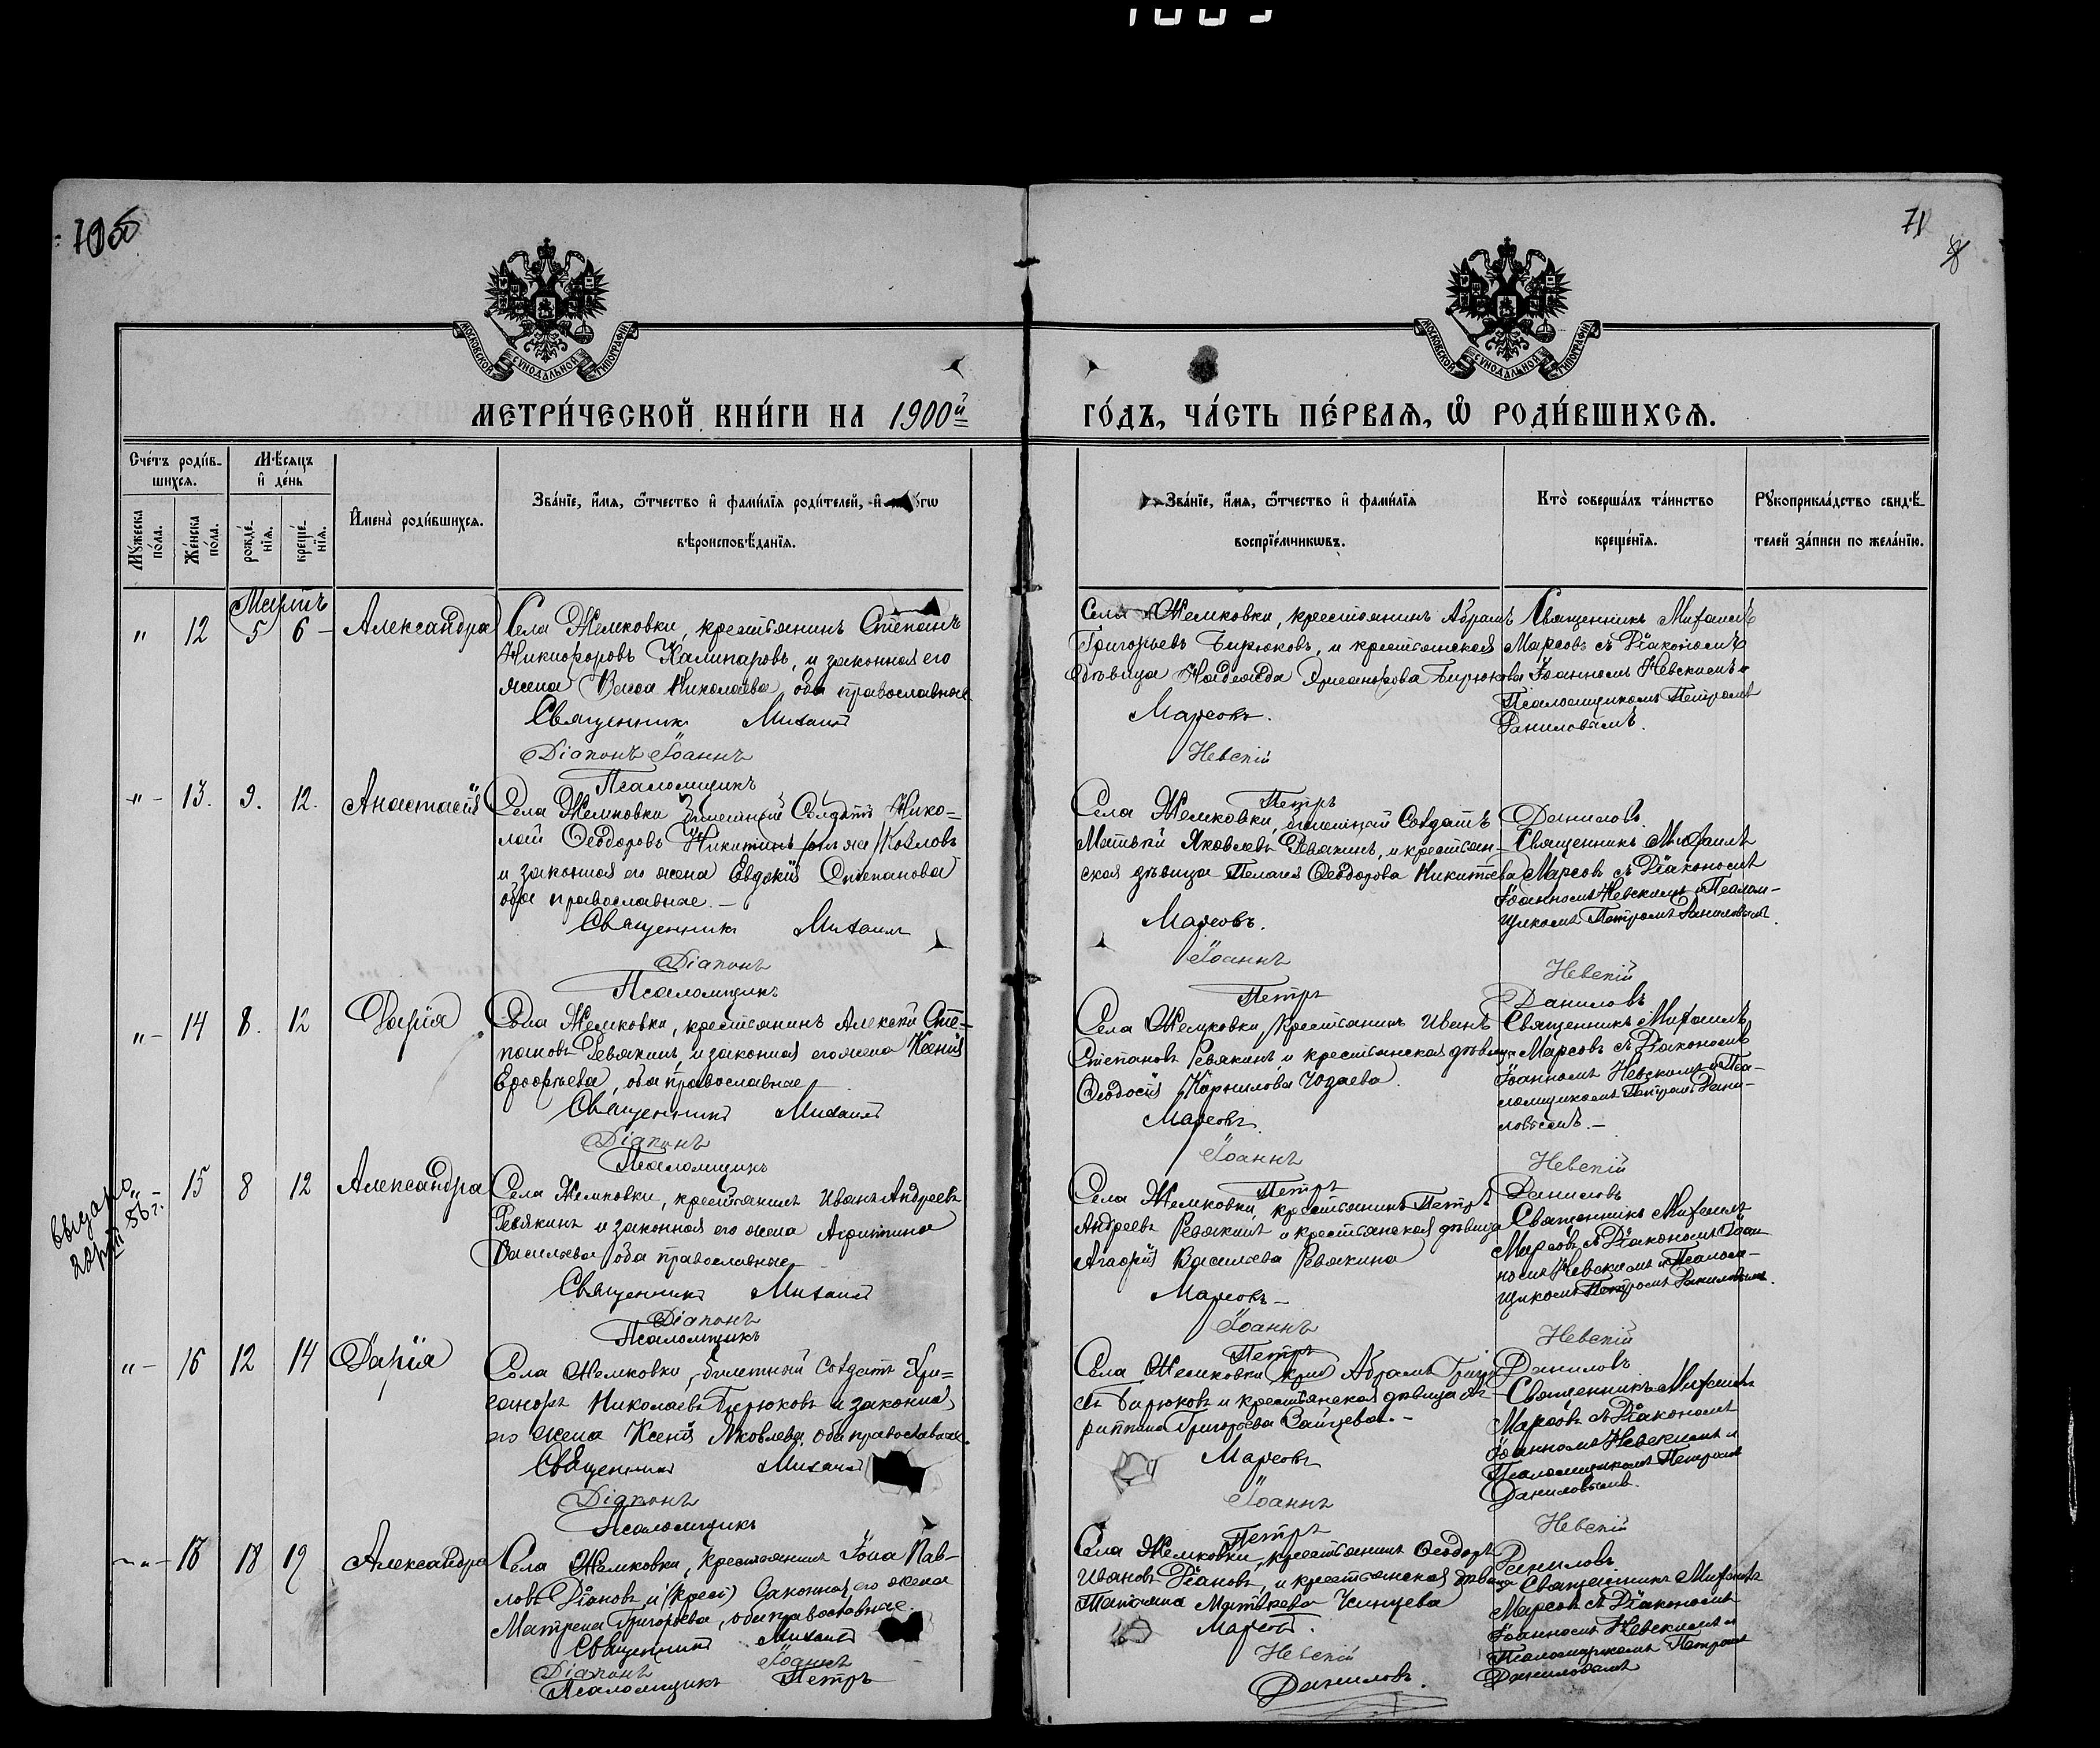 705
71
8
МОСКОВСКОЙ СѴНОДАЛЬНОЙ ТИПОГРАФІИ
МОСКОВСКОЙ СѴНОДАЛЬНОЙ ТИПОГРАФІИ
МЕТРИ́ЧЕСКОЙ КНИ́ГИ НА 1900й
ГО́ДЪ, ЧА́СТЬ ПЕ́РВАѦ, Ѡ РОДИ́ВШИХСѦ.
Сче́тъ роди́в-
шихся.
Мѣ́сяцъ
и де́нь
Му́жеска
по́ла.
Же́нска
по́ла.
рожде́-
нїя.
креще́-
нїя.
Имена̀ роди́вшихся.
Зва́нїе, и́мя, ѻ́тчество и фами́лїя роди́телей, и
вѣроисповѣ́данїя.
Зва́нїе, и́мя, ѻ́тчество и фами́лїя
воспрїе́мникѡвъ.
Кто̀ соверша́лъ та́инство
креще́нїя.
Рꙋкоприкла́дство свидѣ́-
телей за́писи по жела́нїю.
Мартъ
" 12 5 6 Александра
Села Жемковки, крестьянинъ Степанъ
Никифоровъ, и законная его
жена Николаева, оба православные
Священникъ Михаилъ
Діаконъ Іоаннъ
Псаломщикъ
Села Жемковки, крестьянинъ Абрамъ
Григорьевъ Бирюковъ, и крестьянская
дѣвица Надежда Бирюкова
Марсовъ.
Невскій
Петръ
Священникъ Михаилъ
Марсовъ съ Діакономъ
Іоанномъ Невскимъ и
Псаломщикомъ Петромъ
Даниловымъ.
Данилов.
" 13. 9. 12. Анастасія
Села Жемковки билетный Солдатъ Нико-
лай Ѳеодоровъ Никитинъ Козловъ
и законная его жена Евдокія Степанова
оба православные.
Священникъ Михаилъ
Діаконъ
Псаломщикъ
Села Жемковки, билетный Солдатъ
Матвѣй Яковлевъ Ревякинъ, и крестьян-
ская дѣвица Пелагея Ѳеодорова
Марсовъ.
Іоаннъ
Петръ
Священникъ Михаилъ
Марсовъ съ Діакономъ
Іоанномъ Невскимъ и Псалом-
щикомъ Петромъ Даниловымъ.
Невскій
Даниловъ
" 14 8. 12 Дарія
Села Жемковки, крестьянинъ Алексѣй Сте-
пановъ Ревякинъ, и законная его жена Ксенія
Ерофѣева, оба православные
Священникъ Михаилъ
Діаконъ
Псаломщикъ
Села Жемковки, крестьянинъ Иванъ
Степановъ Ревякинъ и крестьянская дѣвица
Ѳеодосія Корнилова Чодаева.
Марсовъ.
Іоаннъ
Петръ
Священникъ Михаилъ
Марсовъ съ Діакономъ
Іоанномъ Невскимъ и Пса-
ломщикомъ Петромъ Дани-
ловымъ.
Невскій
Даниловъ
" 15 8 12 Александра
Села Жемковки, крестьянинъ Иванъ Андреевъ
Ревякинъ и законная его жена Агриппина
Васильева оба православные
Священникъ Михаилъ
Діаконъ
Псаломщикъ
Села Жемковки, крестьянинъ Петръ
Андреевъ Ревякинъ и крестьянская дѣвица
Агафія Васильева Ревякина
Марсовъ
Іоаннъ
Петръ
Священникъ Михаилъ
Марсовъ съ Діакономъ Іоан-
номъ Невскимъ и Псалом-
щикомъ Петромъ Даниловымъ.
Невскій
Даниловъ
" 16 12 14 Дарія
Села Жемковки, билетный Солдатъ Хри-
санфъ Николаевъ Бирюковъ и законная
его жена Ксенія Яковлева, оба православные.
Священникъ Михаилъ
Діаконъ
Псаломщикъ
Села Жемковки, Абрамъ Григорь-
евъ Бирюковъ и крестьянская дѣвица Аг-
риппина Григорьева Зайцева.
Марсовъ
Іоаннъ
Петръ
Священникъ Михаилъ
Марсовъ съ Діакономъ
Іоанномъ Невскимъ и
Псаломщикомъ Петромъ
Даниловымъ.
Невскій
Даниловъ
18 19 Александра
Села Жемковки, крестьянинъ Іона Пав-
ловъ Діановъ и законная его жена
Матрена Григорьева, оба православные.
Священникъ Михаилъ
Діаконъ Іоаннъ
Псаломщикъ Петръ
Села Жемковки, крестьянинъ Ѳеодоръ
Ивановъ Діановъ, и крестьянская дѣвица
Татьяна Матвѣева
Марсовъ.
Невскій
Даниловъ.
Священникъ Михаилъ
Марсовъ съ Діакономъ
Іоанномъ Невскимъ и
Псаломщикомъ Петромъ
Даниловымъ
выдано
56 г.